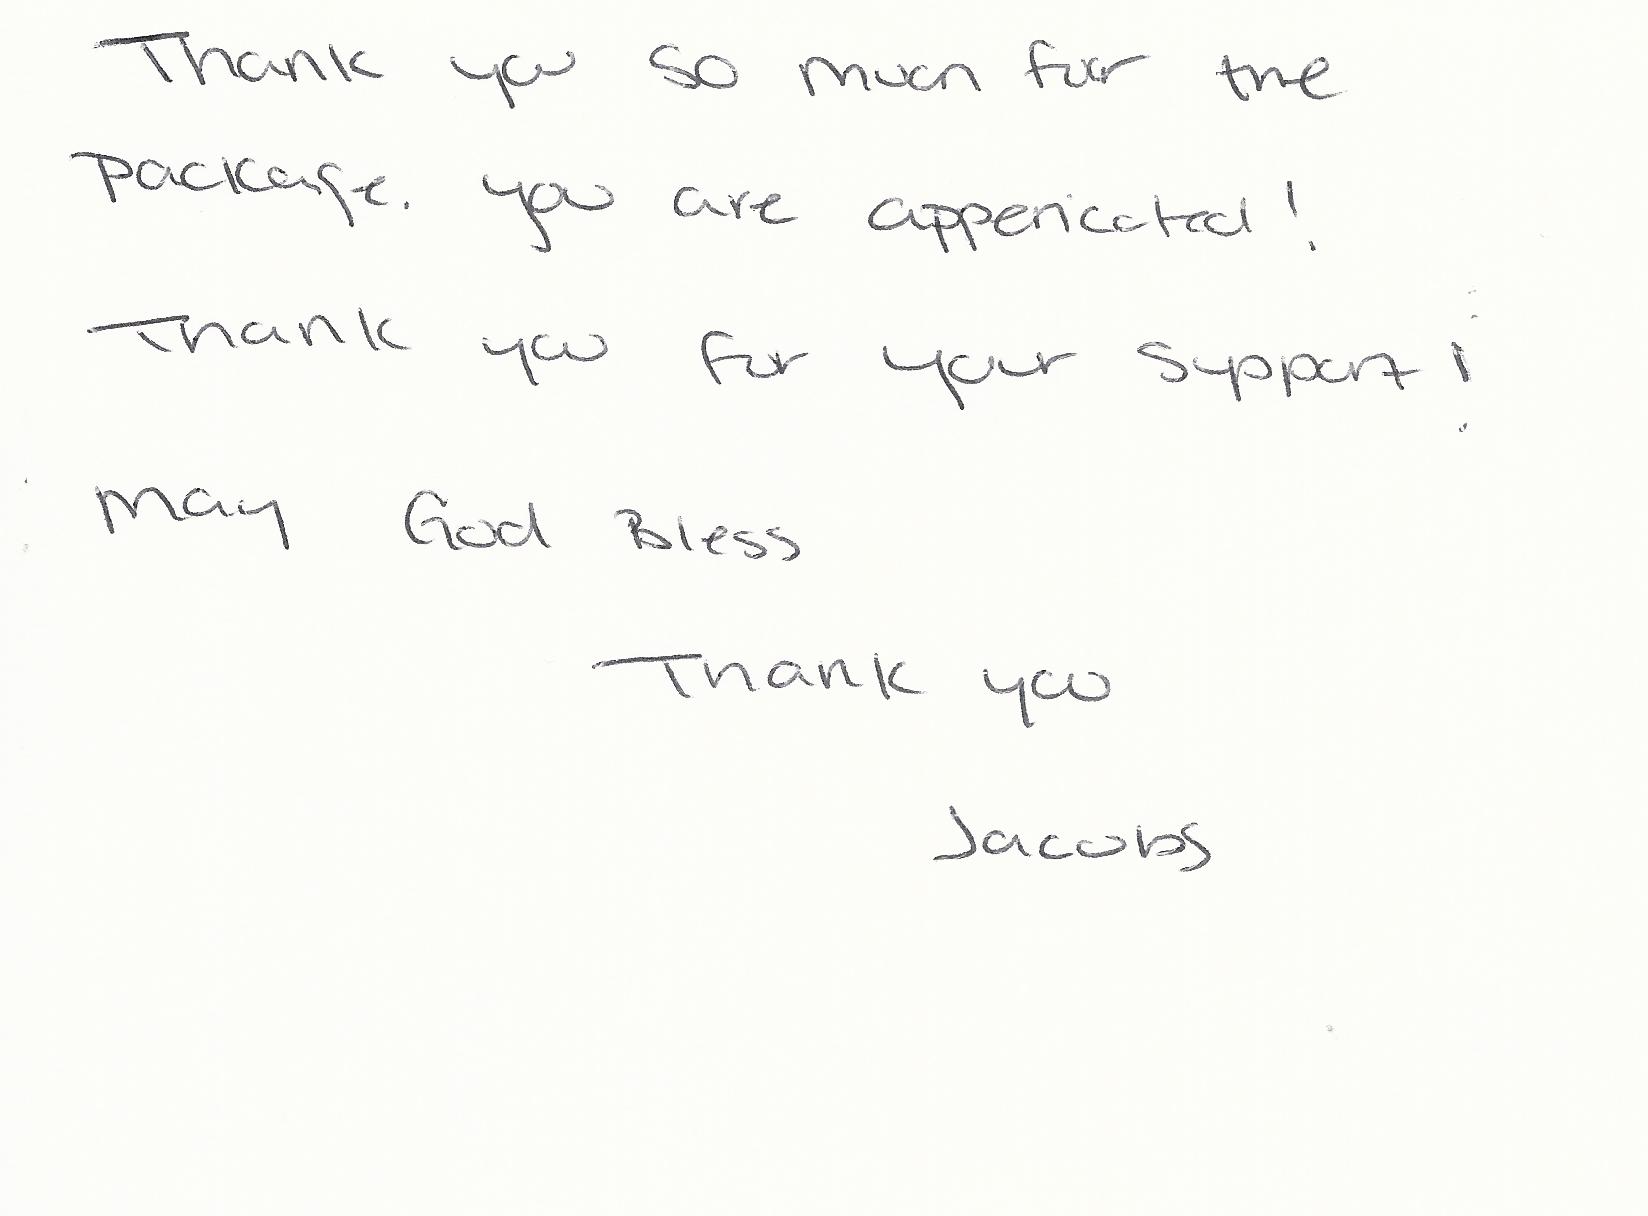 Thank you so much for the
package. you are appericated!
Thank you for your support!
May God Bless
Thank you
Jacobs